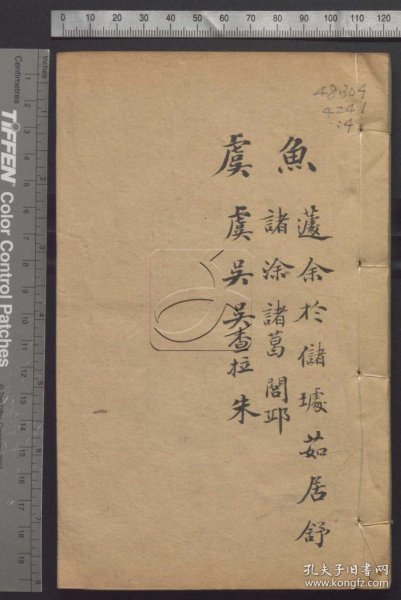 48304
4241
:4
魚
蘧余於儲璩茹居舒
諸涂諸葛閭邱
虞
虞吳吳查拉朱
0 10 20 30 40 50 60 70 80 90 100 110 120
Inches
Centimetres
TIFFEN Color Control Patches
孔夫子旧书网
www.kongfz.com